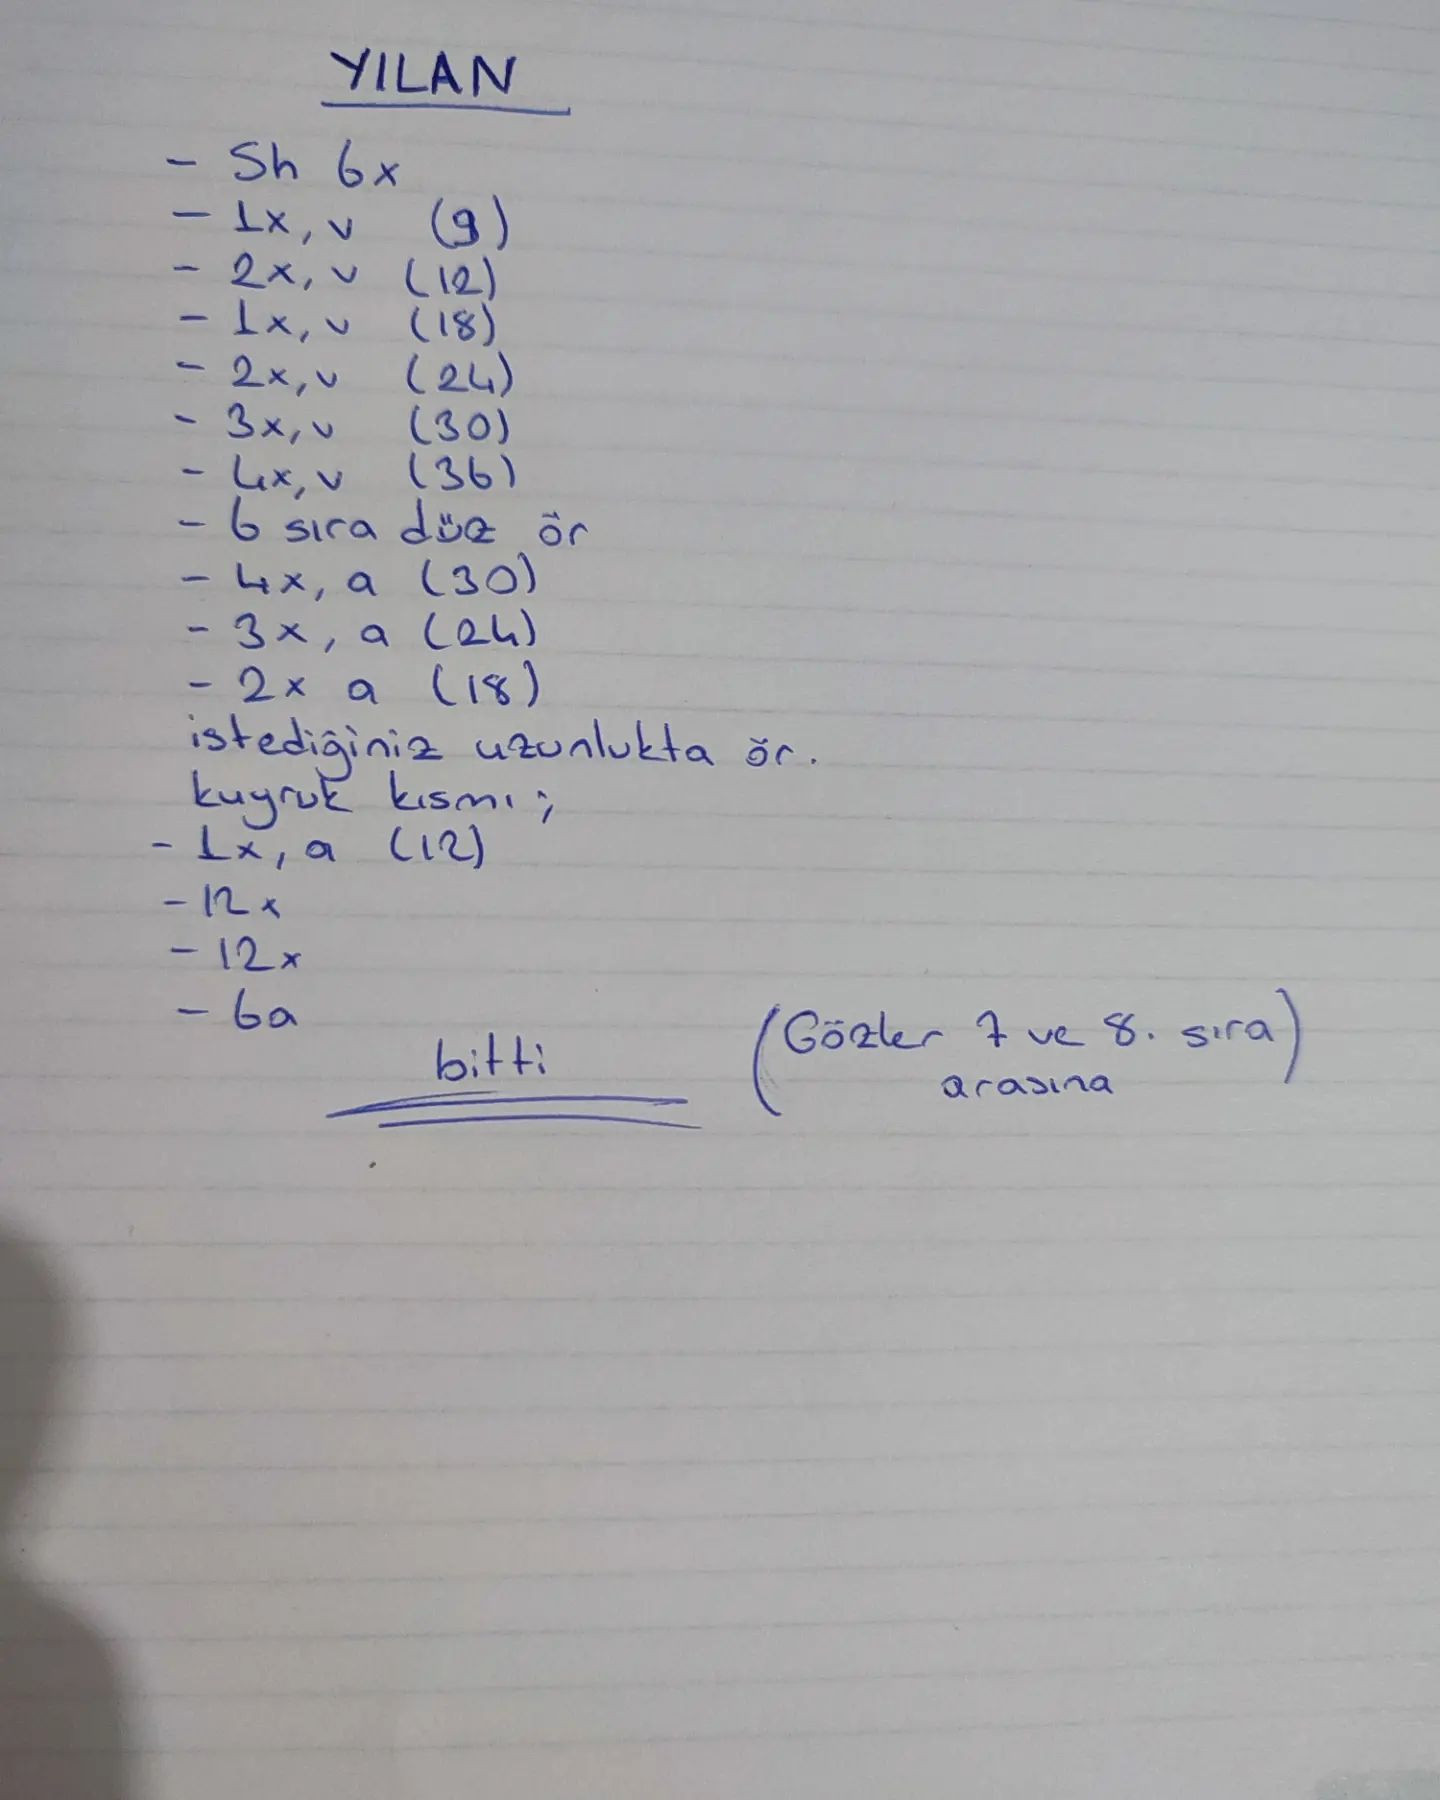 YILAN
- Sh 6x
- 1x, v (9)
- 2x, v (12)
- 1x, v (18)
- 2x, v (24)
- 3x, v (30)
- 4x, v (36)
- 6 sıra düz ör
- 4x, a (30)
- 3x, a (24)
- 2x a (18)
istediğiniz uzunlukta ör.
kuyruk kısmı;
- 1x, a (12)
- 12x
- 12x
- 6a
bitti
(Gözler 7 ve 8. sıra
arasına)